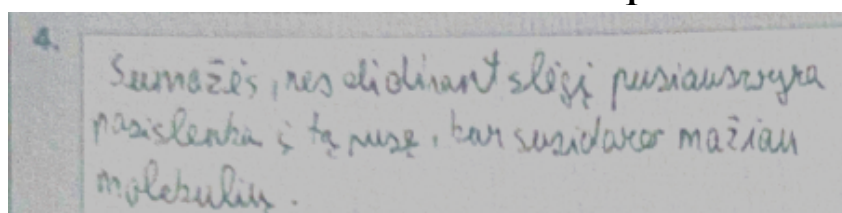 4.
Sumažės, nes didinant slėgį pusiausvyra
pasislenka į tą pusę, kur susidaro mažiau
molekulių.